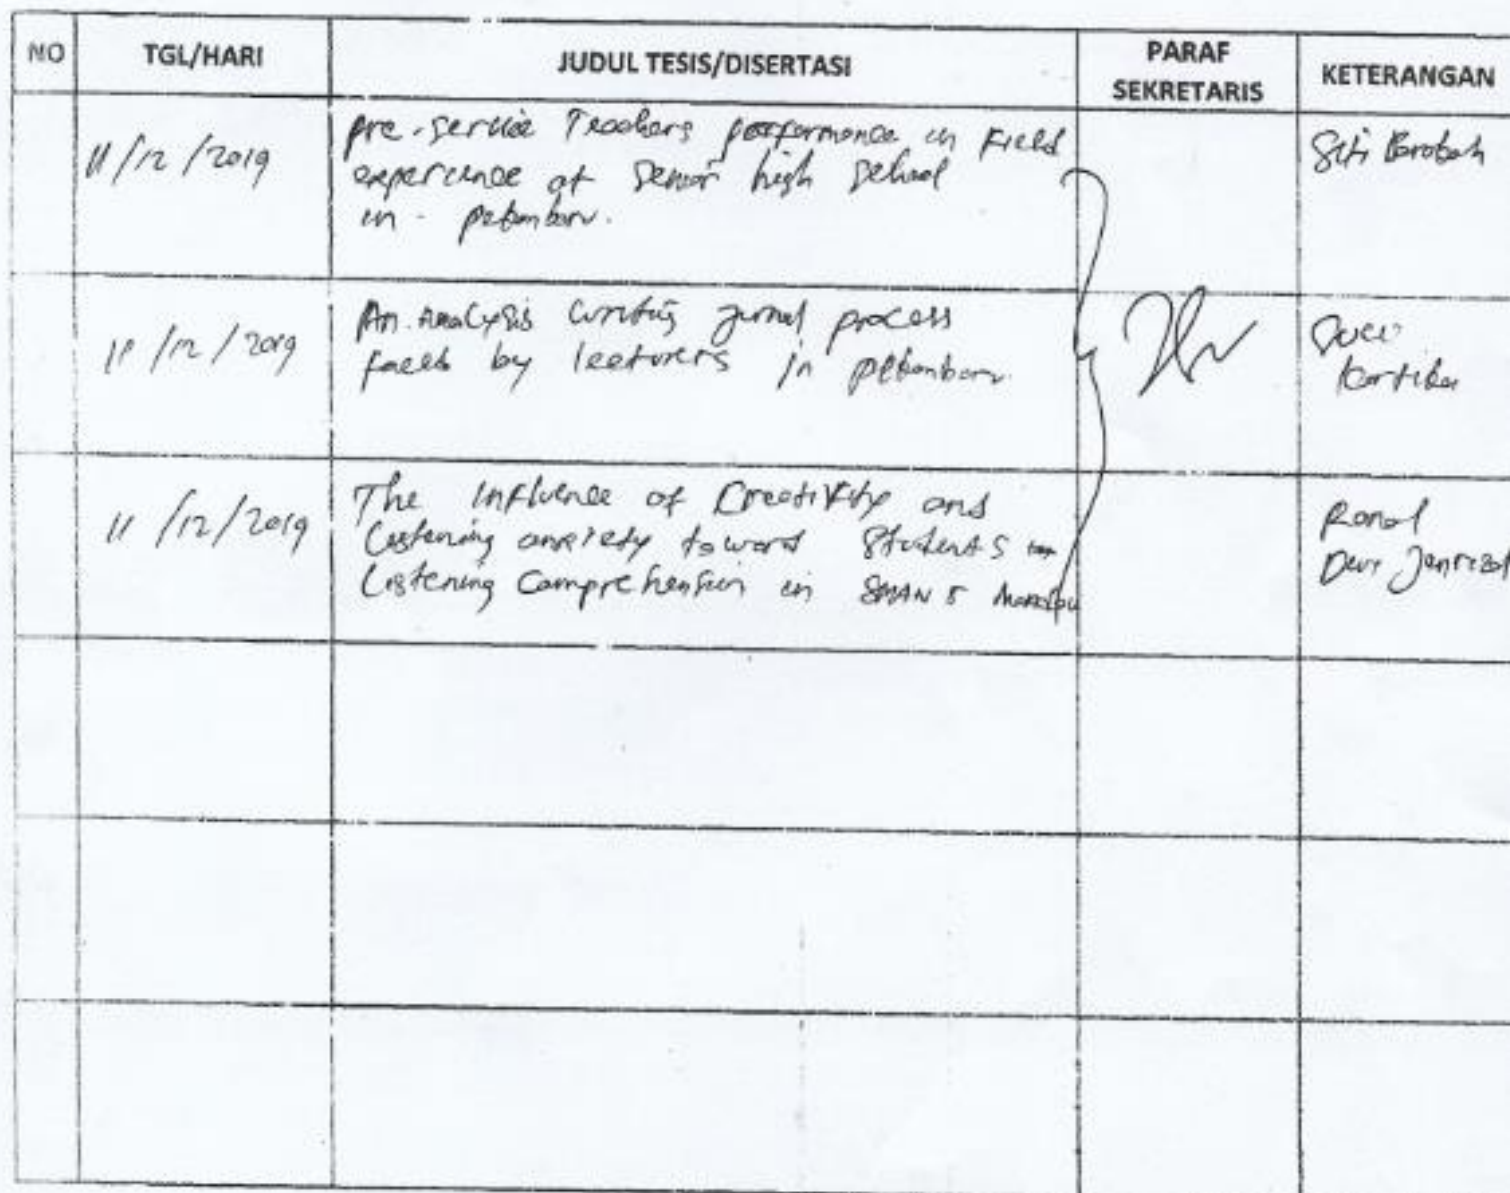 NO TGL/HARI JUDUL TESIS/DISERTASI PARAF SEKRETARIS KETERANGAN
11/12/2019
pre-service Teachers performance in Field
experience at Senior high School
in - pekanbaru.
Siti
11/12/2019
An. Analysis writing jurnal process
faced by lecturers in pekanbaru
Kartika
11/12/2019
The Influence of Creativity and
Listening anxiety toward Students
Listening Comprehension in SMAN 5
Ronal